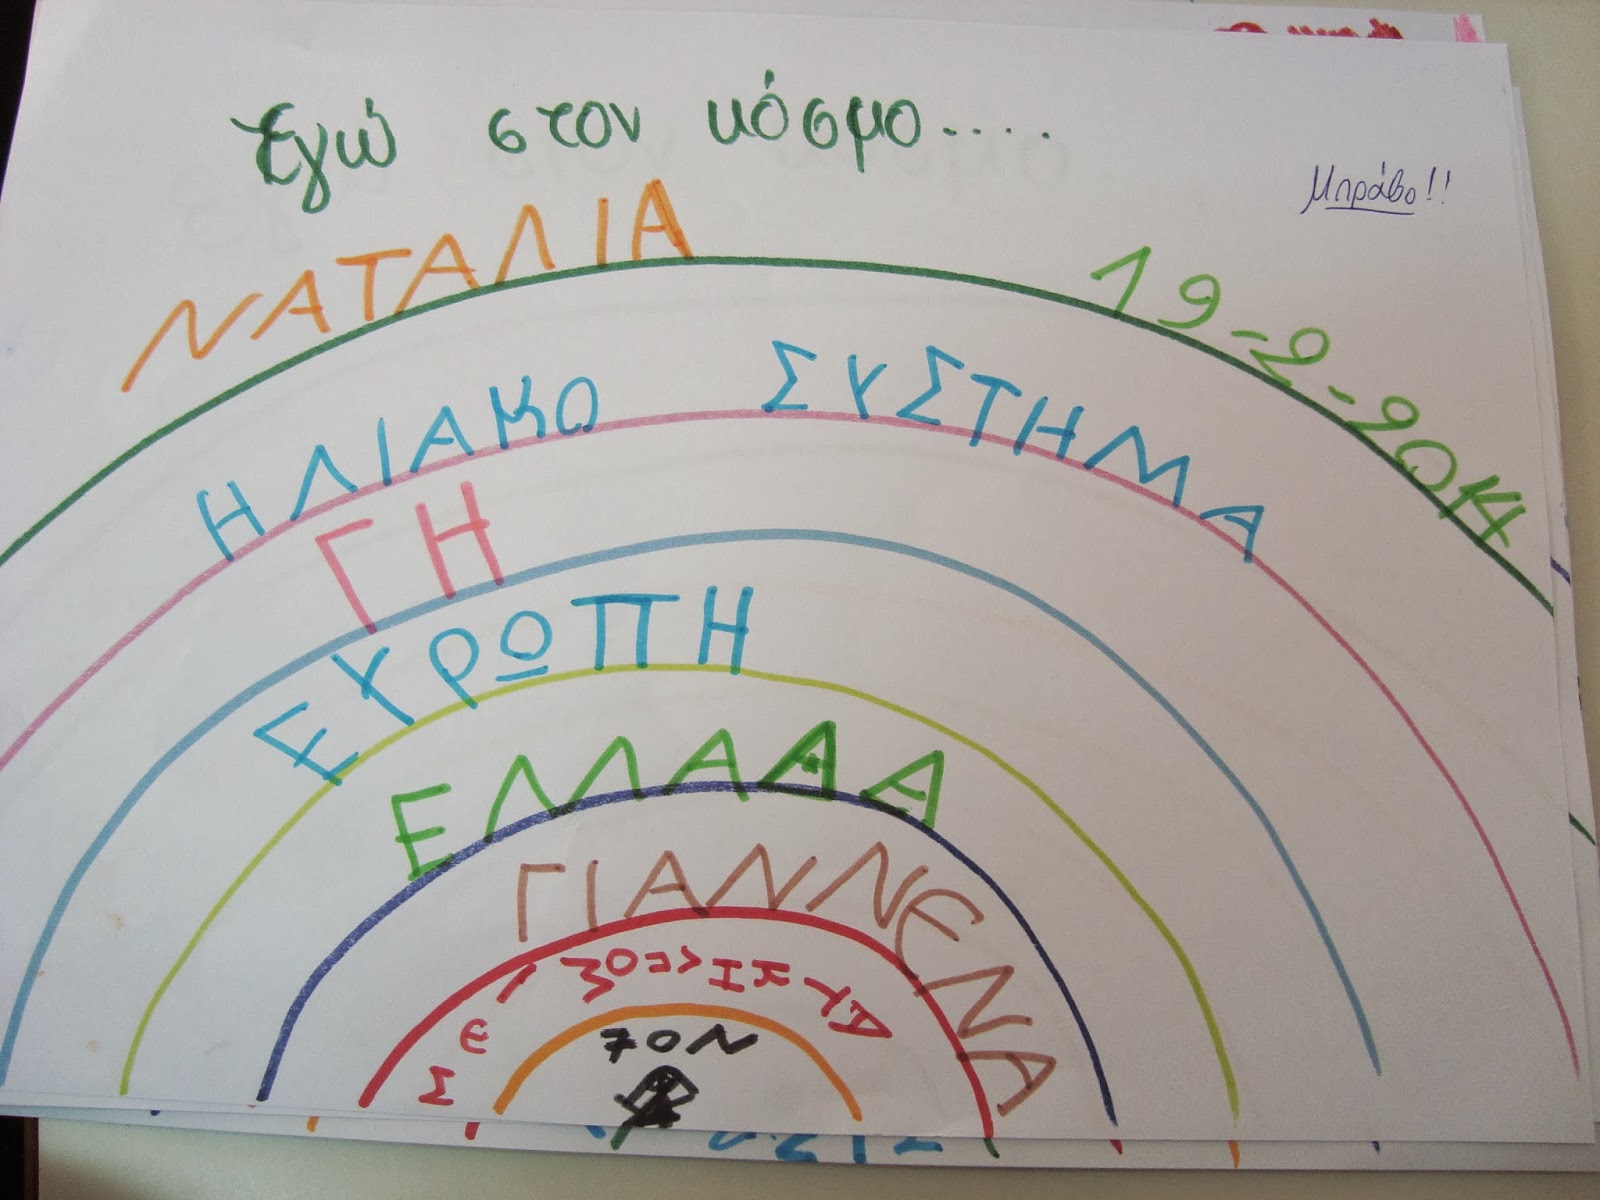 Εγώ στον κόσμο....
Μπράβο!!
ΝΑΤΑΛΙΑ 19-2-2014
ΗΛΙΑΚΟ ΣΥΣΤΗΜΑ
ΓΗ
ΕΥΡΩΠΗ
ΕΛΛΑΔΑ
ΓΙΑΝΝΕΝΑ